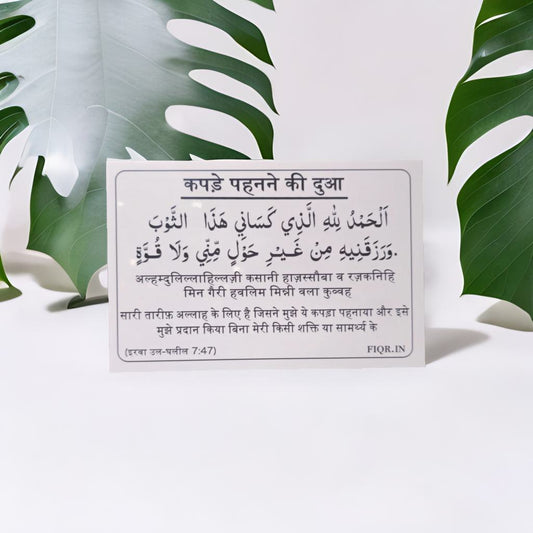 कपड़े पहनने की दुआ
اَلْحَمْدُ لِلّٰهِ الَّذِي كَسَانِي هَذَا الثَّوْبَ
وَرَزَقَنِيهِ مِنْ غَيْرِ حَوْلٍ مِّنِّي وَلَا قُوَّةٍ.
अल्हम्दुलिल्लाहिल्लज़ी कसानी हाज़स्सौबा व रज़कनिहि
मिन गैरी हवलिम मिन्नी वला कुव्वह
सारी तारीफ़ अल्लाह के लिए है जिसने मुझे ये कपड़ा पहनाया और इसे
मुझे प्रदान किया बिना मेरी किसी शक्ति या सामर्थ्य के
(इरवा उल-घलील 7:47) FIQR.IN